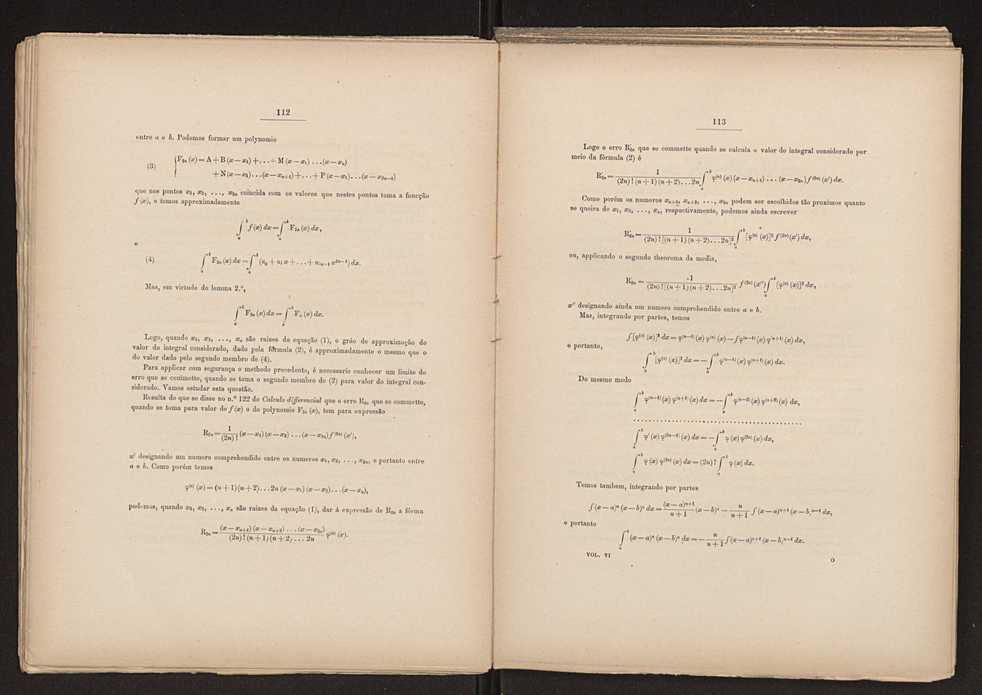 112
entre a e b. Podemos formar um polynomio
(3) F₂ₙ (x) = A + B (x — x₁) + . . . + M (x — x₁) . . . (x — xₙ)
+ N (x — x₁) . . . (x — xₙ₊₁) + . . . + P (x — x₁) . . . (x — x₂ₙ₋₁)
que nos pontos x₁, x₂, . . ., x₂ₙ coincida com os valores que nestes pontos toma a funcção
f (x), e temos approximadamente
∫ₐᵇ f(x) dx = ∫ₐᵇ F₂ₙ (x) dx,
e
(4) ∫ₐᵇ F₂ₙ (x) dx = ∫ₐᵇ (a₀ + a₁ x + . . . + a₂ₙ₋₁ x²ⁿ⁻¹) dx.
Mas, em virtude do lemma 2.º,
∫ₐᵇ F₂ₙ (x) dx = ∫ₐᵇ Fₙ (x) dx.
Logo, quando x₁, x₂, . . ., xₙ são raizes da equação (1), o gráo de approximação do
valor do integral considerado, dado pela fórmula (2), é approximadamente o mesmo que o
do valor dado pelo segundo membro de (4).
Para applicar com segurança o methodo precedente, é necessario conhecer um limite do
erro que se commette, quando se toma o segundo membro de (2) para valor do integral con-
siderado. Vamos estudar esta questão.
Resulta do que se disse no n.º 122 do Calculo differencial que o erro R₂ₙ que se commette,
quando se toma para valor de f (x) o do polynomio F₂ₙ (x), tem para expressão
R₂ₙ = 1/(2n)! (x — x₁) (x — x₂) . . . (x — x₂ₙ) f⁽²ⁿ⁾ (x′),
x′ designando um numero comprehendido entre os numeros x₁, x₂, . . ., x₂ₙ, e portanto entre
a e b. Como porém temos
φ⁽ⁿ⁾ (x) = (n + 1) (n + 2) . . . 2n (x — x₁) (x — x₂) . . . (x — xₙ),
podemos, quando x₁, x₂, . . ., xₙ são raizes da equação (1), dar á expressão de R₂ₙ a fórma
R₂ₙ = (x — xₙ₊₁) (x — xₙ₊₂) . . . (x — x₂ₙ) / (2n)! (n + 1) (n + 2) . . . 2n φ⁽ⁿ⁾ (x).
113
Logo o erro R′₂ₙ que se commette quando se calcula o valor do integral considerado por
meio da fórmula (2) é
R′₂ₙ = 1/(2n)! (n + 1) (n + 2) . . . 2n ∫ₐᵇ φ⁽ⁿ⁾ (x) (x — xₙ₊₁) . . . (x — x₂ₙ) f⁽²ⁿ⁾ (x′) dx.
Como porém os numeros xₙ₊₁, xₙ₊₂, . . ., x₂ₙ podem ser escolhidos tão proximos quanto
se queira de x₁, x₂, . . ., xₙ, respectivamente, podemos ainda escrever
R′₂ₙ = 1/(2n)! [(n + 1) (n + 2) . . . 2n]² ∫ₐᵇ [φ⁽ⁿ⁾ (x)]² f⁽²ⁿ⁾ (x′) dx,
ou, applicando o segundo theorema da media,
R′₂ₙ = 1/(2n)! [(n + 1) (n + 2) . . . 2n]² f⁽²ⁿ⁾ (x″) ∫ₐᵇ [φ⁽ⁿ⁾ (x)]² dx,
x″ designando ainda um numero comprehendido entre a e b.
Mas, integrando por partes, temos
∫ [φ⁽ⁿ⁾ (x)]² dx = φ⁽ⁿ⁻¹⁾ (x) φ⁽ⁿ⁾ (x) — ∫ φ⁽ⁿ⁻¹⁾ (x) φ⁽ⁿ⁺¹⁾ (x) dx,
e portanto,
∫ₐᵇ [φ⁽ⁿ⁾ (x)]² dx = — ∫ₐᵇ φ⁽ⁿ⁻¹⁾ (x) φ⁽ⁿ⁺¹⁾ (x) dx.
Do mesmo modo
∫ₐᵇ φ⁽ⁿ⁻¹⁾ (x) φ⁽ⁿ⁺¹⁾ (x) dx = — ∫ₐᵇ φ⁽ⁿ⁻²⁾ (x) φ⁽ⁿ⁺²⁾ (x) dx,
. . . . . . . . . . . . . . . . . . . . . . . . . . . . . .
∫ₐᵇ φ′ (x) φ⁽²ⁿ⁻¹⁾ (x) dx = — ∫ₐᵇ φ (x) φ⁽²ⁿ⁾ (x) dx,
∫ₐᵇ φ (x) φ⁽²ⁿ⁾ (x) dx = (2n)! ∫ₐᵇ φ (x) dx.
Temos tambem, integrando por partes
∫ (x — a)ⁿ (x — b)ⁿ dx = (x — a)ⁿ⁺¹/n + 1 (x — b)ⁿ — n/n + 1 ∫ (x — a)ⁿ⁺¹ (x — b)ⁿ⁻¹ dx,
e portanto
∫ₐᵇ (x — a)ⁿ (x — b)ⁿ dx = — n/n + 1 ∫ (x — a)ⁿ⁺¹ (x — b)ⁿ⁻¹ dx.
VOL. VI O